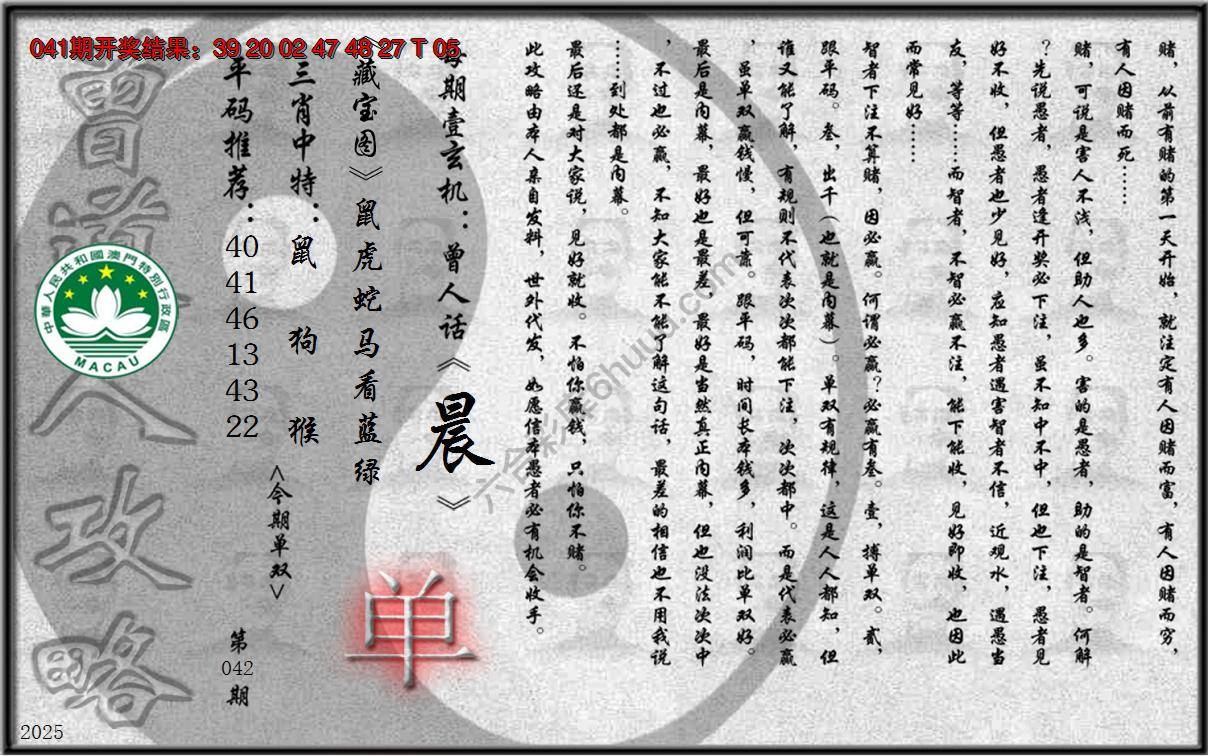 041期开奖结果：39 20 02 47 48 27 T 05
赌，从前有赌的第一天开始，就注定有人因赌而富，有人因赌而穷，
有人因赌而死……
赌，可说是害人不浅，但助人也多。害的是愚者，助的是智者。何解
？先说愚者，愚者逢开奖必下注，虽不知中不中，但也下注，愚者见
好不收，但愚者也少见好，应知愚者遇害智者不信，近观水，遇愚当
友，等等……而智者，不智必赢不注，能下能收，见好即收，也因此
而常见好……
智者下注不算赌，因必赢。何谓必赢？必赢有叁。壹，搏单双。贰，
跟平码。叁，出千（也就是内幕）。单双有规律，这是人人都知，但
谁又能了解，有规则不代表次次都能下注，次次都中。而是代表必赢
，虽单双赢钱慢，但可靠。跟平码，时间长本钱多，利润比单双好。
最后是内幕，最好也是最差，最好是当然真正内幕，但也没法次次中
，不过也必赢，不知大家能不能了解这句话，最差的相信也不用我说
……到处都是内幕。
最后还是对大家说，见好就收。不怕你赢钱，只怕你不赌。
此攻略由本人亲自发料，世外代发，如愿信本愚者必有机会收手。
每期壹玄机：曾人话《晨》
《藏宝图》鼠虎蛇马看蓝绿
三肖中特：鼠 狗 猴
平码推荐：40 41 46 13 43 22
<今期单双>
单
第042期
曾道人攻略
中華人民共和國澳門特別行政區
MACAU
六合彩库6huuu.com
2025